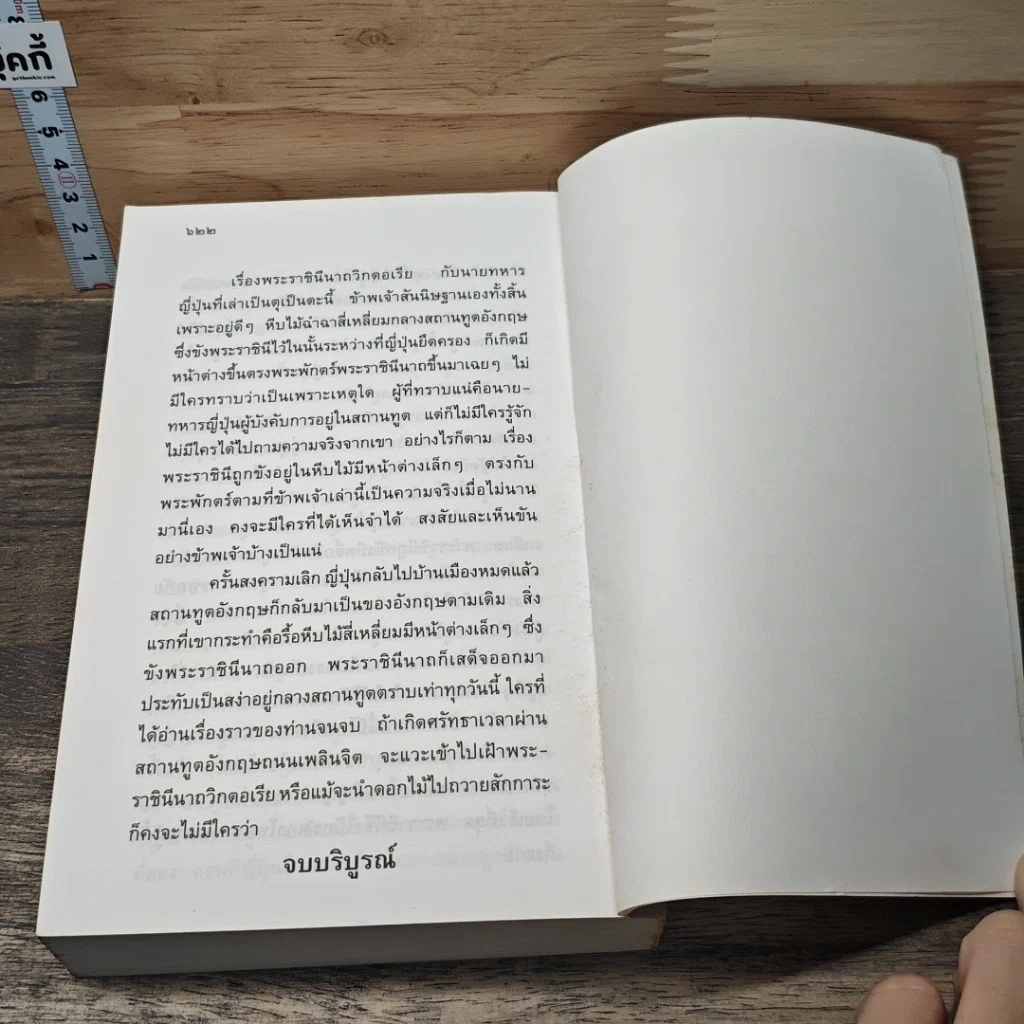 ๖๒๒
เรื่องพระราชินีนาถวิกตอเรีย กับนายทหาร
ญี่ปุ่นที่เล่าเป็นตุเป็นตะนี้ ข้าพเจ้าสันนิษฐานเองทั้งสิ้น
เพราะอยู่ดีๆ หีบไม้ฉำฉาสี่เหลี่ยมกลางสถานทูตอังกฤษ
ซึ่งขังพระราชินีไว้ในนั้นระหว่างที่ญี่ปุ่นยึดครอง ก็เกิดมี
หน้าต่างขึ้นตรงพระพักตร์พระราชินีนาถขึ้นมาเฉยๆ ไม่
มีใครทราบว่าเป็นเพราะเหตุใด ผู้ที่ทราบแน่คือนาย-
ทหารญี่ปุ่นผู้บังคับการอยู่ในสถานทูต แต่ก็ไม่มีใครรู้จัก
ไม่มีใครได้ไปถามความจริงจากเขา อย่างไรก็ตาม เรื่อง
พระราชินีถูกขังอยู่ในหีบไม้มีหน้าต่างเล็กๆ ตรงกับ
พระพักตร์ตามที่ข้าพเจ้าเล่านี้เป็นความจริงเมื่อไม่นาน
มานี่เอง คงจะมีใครที่ได้เห็นจำได้ สงสัยและเห็นขัน
อย่างข้าพเจ้าบ้างเป็นแน่
ครั้นสงครามเลิก ญี่ปุ่นกลับไปบ้านเมืองหมดแล้ว
สถานทูตอังกฤษก็กลับมาเป็นของอังกฤษตามเดิม สิ่ง
แรกที่เขากระทำคือรื้อหีบไม้สี่เหลี่ยมมีหน้าต่างเล็กๆ ซึ่ง
ขังพระราชินีนาถออก พระราชินีนาถก็เสด็จออกมา
ประทับเป็นสง่าอยู่กลางสถานทูตตราบเท่าทุกวันนี้ ใครที่
ได้อ่านเรื่องราวของท่านจนจบ ถ้าเกิดศรัทธาเวลาผ่าน
สถานทูตอังกฤษถนนเพลินจิต จะแวะเข้าไปเฝ้าพระ-
ราชินีนาถวิกตอเรีย หรือแม้จะนำดอกไม้ไปถวายสักการะ
ก็คงจะไม่มีใครว่า
จบบริบูรณ์
6
5
4
3
2
1